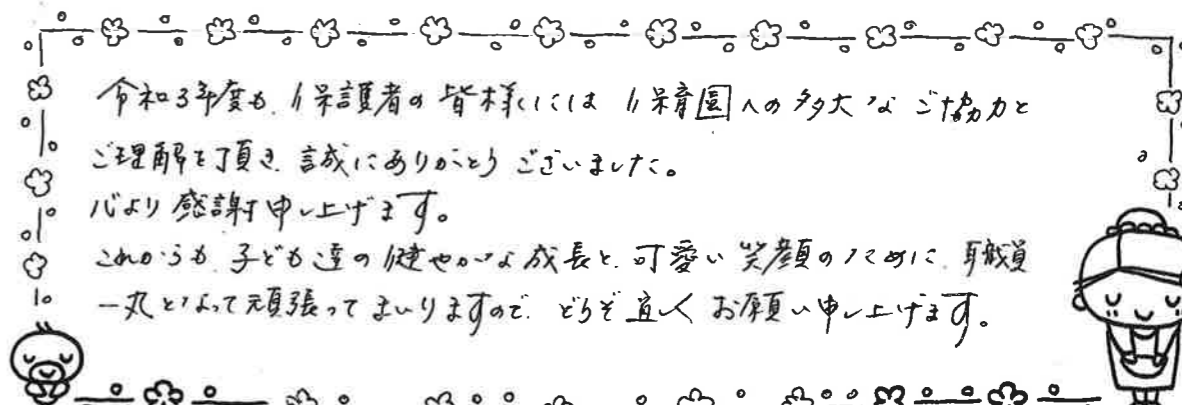 令和3年度も、保護者の皆様には保育園への多大なご協力と
ご理解を頂き、誠にありがとうございました。
心より感謝申し上げます。
これからも、子ども達の健やかな成長と、可愛い笑顔のために、職員
一丸となって頑張ってまいりますので、どうぞ宜くお願い申し上げます。